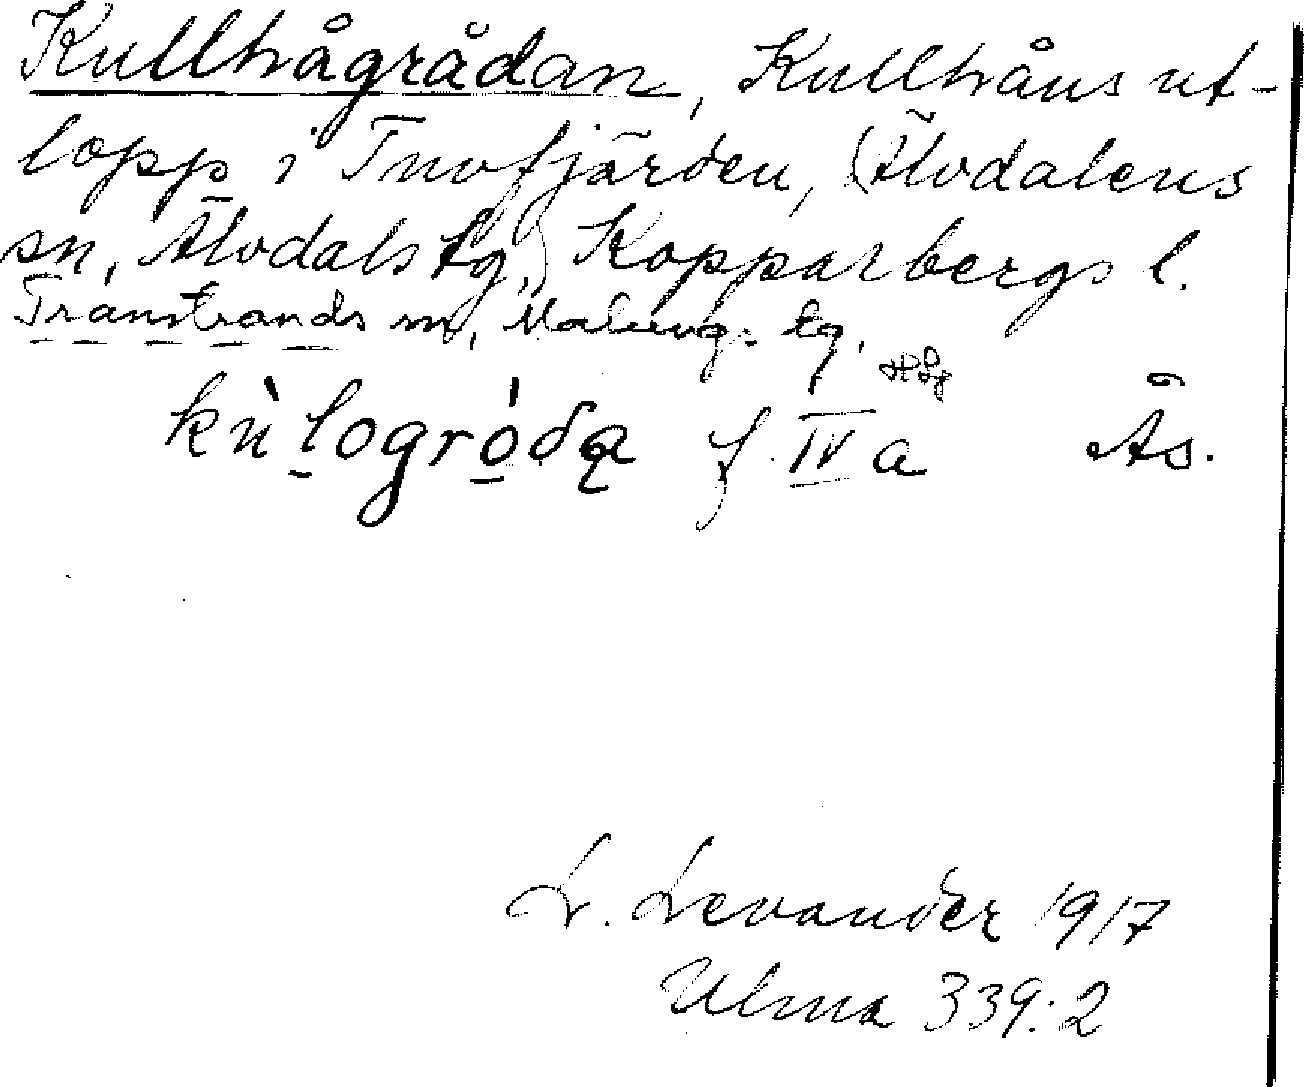 Kullhågrådan, Kullhåns ut-
lopp i Tnofjärden, (Älvdalens
sn, Älvdals tg,) Kopparbergs l.
Transtrands sn, Malungs tg.
kùlogródą f. IV a Ås.
L. Levander 1917
Ulma 339:2